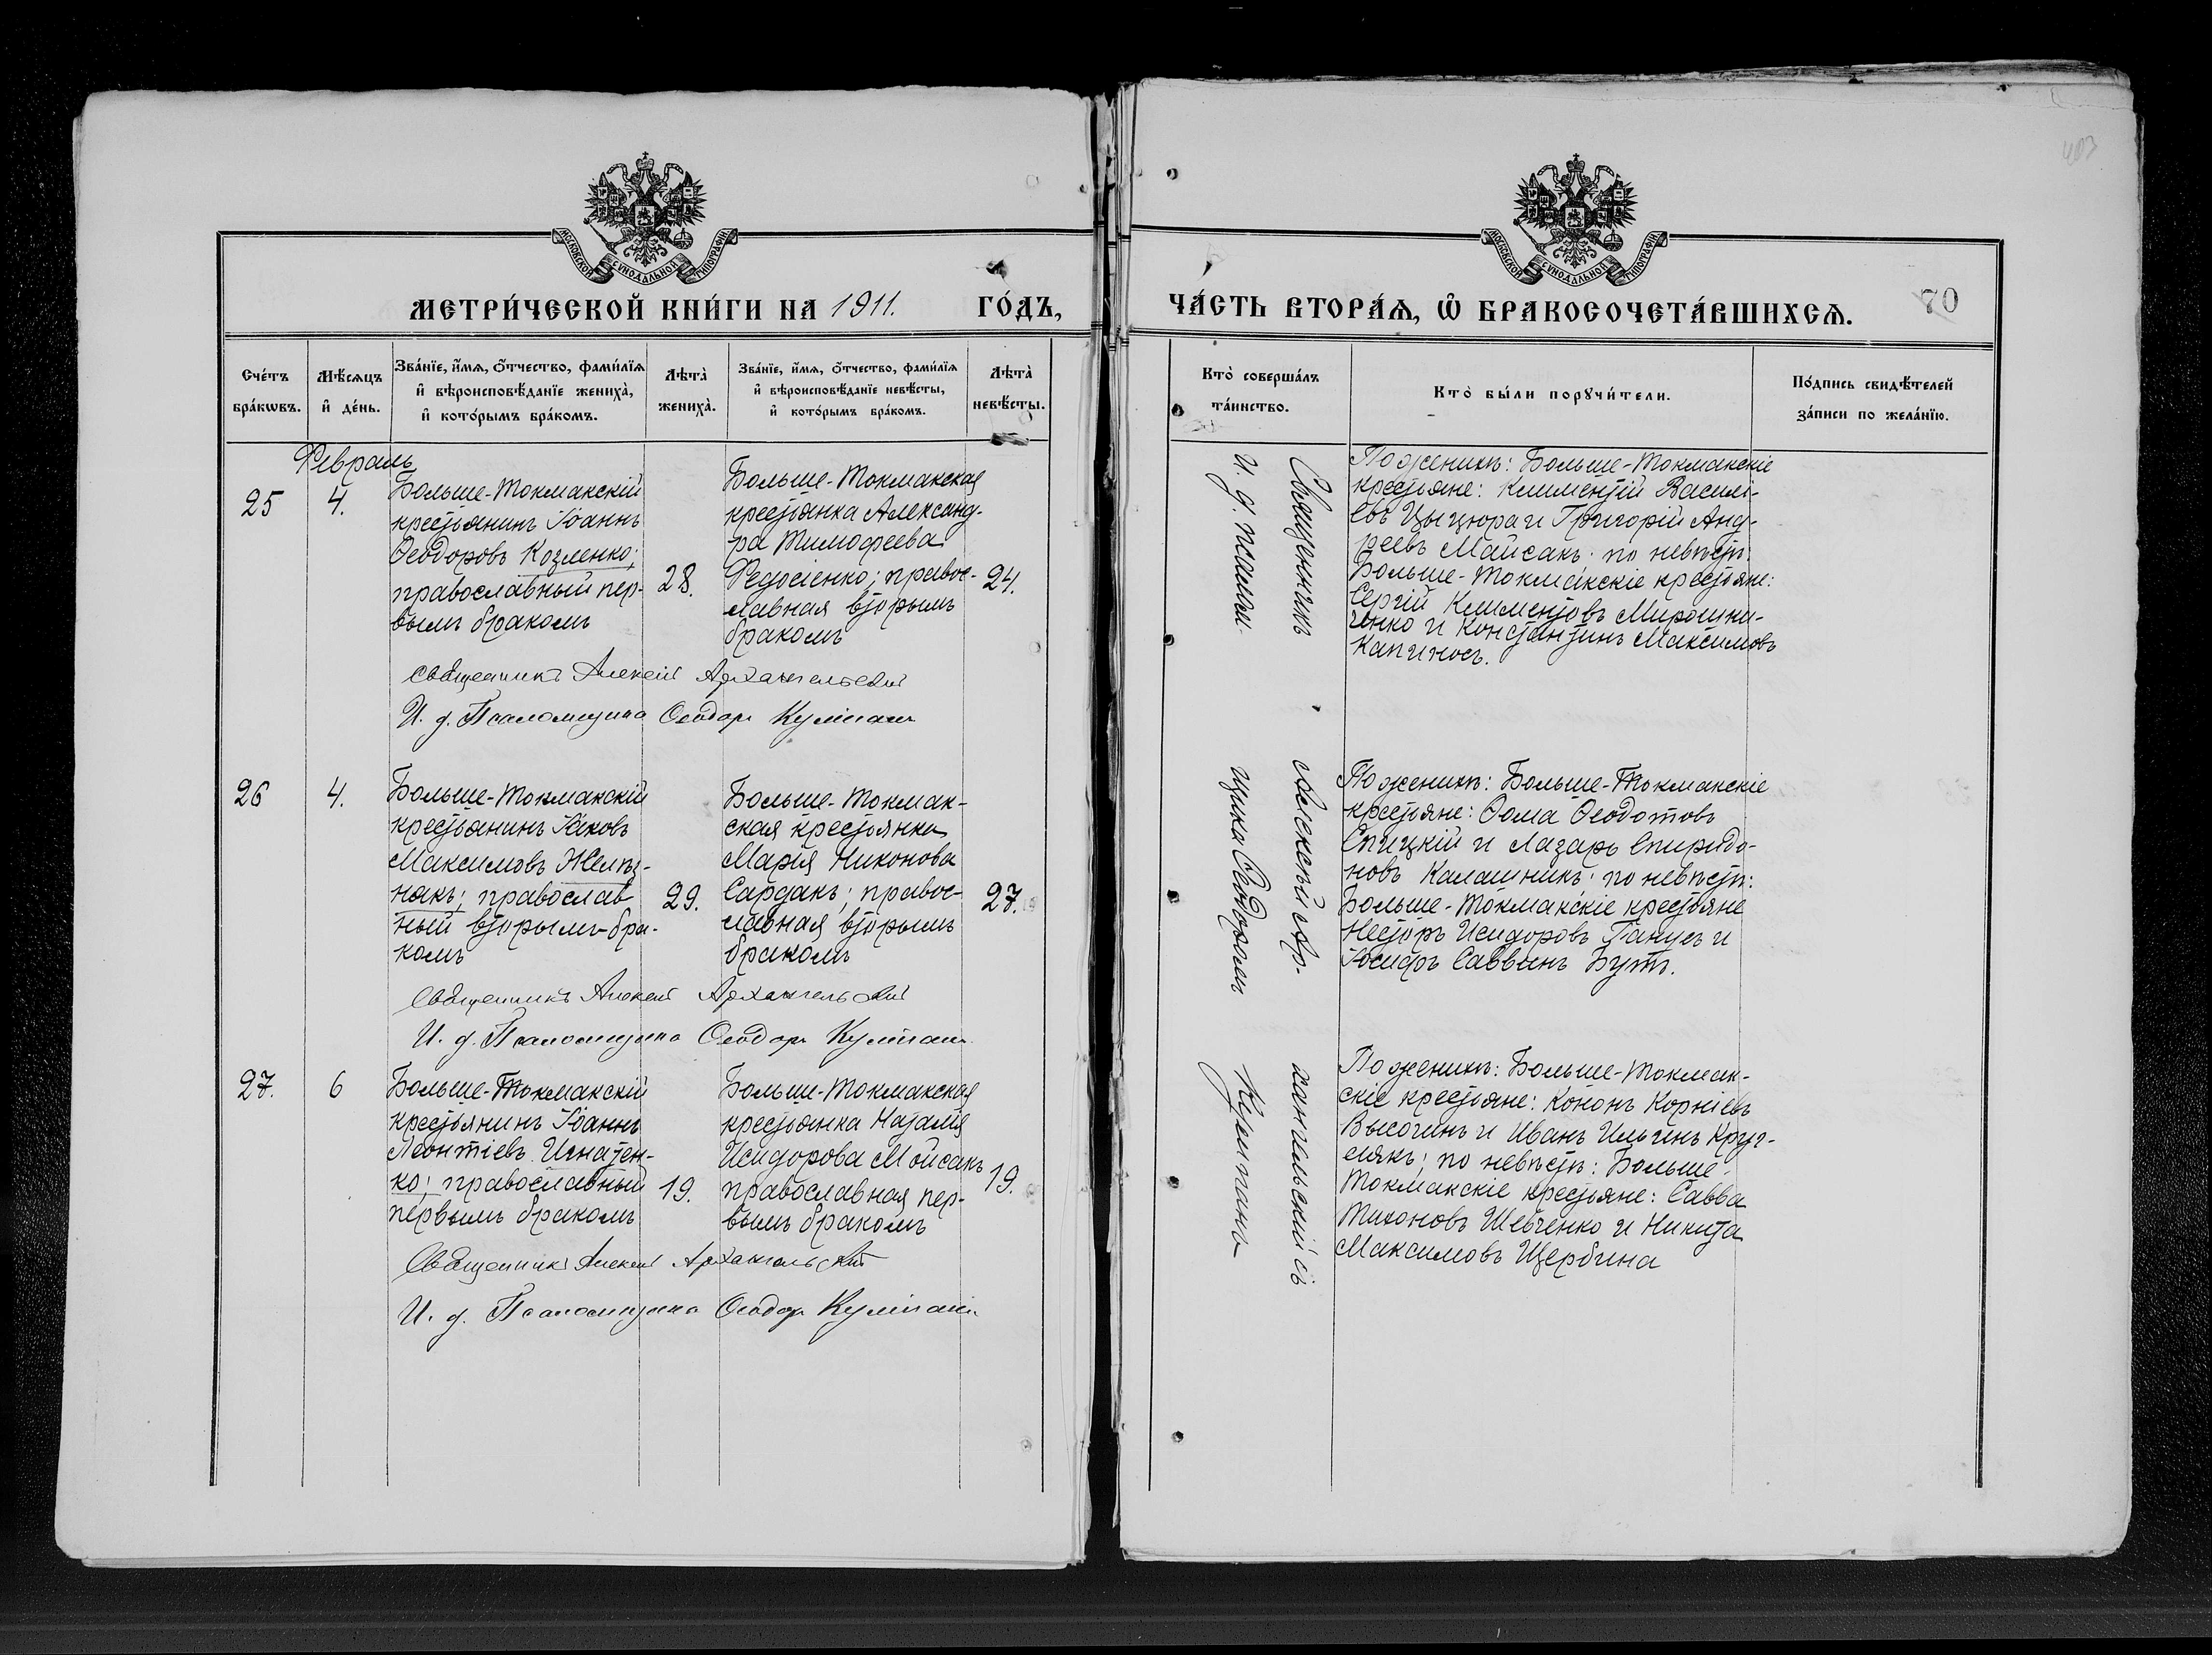 403
МОСКОВСКОЙ СѴНОДАЛЬНОЙ ТИПОГРАФІИ
МЕТРИ́ЧЕСКОЙ КНИ́ГИ НА 1911. ГО́ДЪ,
Сче́тъ бра́кѡвъ.
Мѣ́сяцъ и҆ де́нь.
Зва́нїе, и҆́мѧ, ѻ҆́тчество, фами́лїѧ
и҆ вѣроисповѣ́данїе жениха̀,
и҆ кото́рымъ бра́комъ.
Лѣта̀ жениха̀.
Зва́нїе, и҆́мѧ, ѻ҆́тчество, фами́лїѧ
и҆ вѣроисповѣ́данїе невѣ́сты,
и҆ кото́рымъ бра́комъ.
Лѣта̀ невѣ́сты.
Февраль
25
4.
Больше-Токмакскій
крестьянинъ Іоаннъ
Ѳеодоровъ Козленко;
православный пер-
вымъ бракомъ
28.
Больше-Токмакская
крестьянка Александ-
ра Тимофеева
Федосіенко; правос-
лавная вторымъ
бракомъ
24.
Священникъ Алексій Архангельскій
И. д. Псаломщика Ѳеодоръ
26
4.
Больше-Токмакскій
крестьянинъ Іаковъ
Максимовъ Желѣз-
някъ; православ
ный вторымъ бра-
комъ
29.
Больше-Токмак-
ская крестьянка
Марія Никонова
Сардакъ; правос-
лавная вторымъ
бракомъ
27.
Священникъ Алексій Архангельскій
И. д. Псаломщика Ѳеодоръ
27.
6
Больше-Токмакскій
крестьянинъ Іоаннъ
Леонтіевъ Игнатен-
ко; православный
первымъ бракомъ
19.
Больше-Токмакская
крестьянка Наталія
Исидорова Мойсакъ
православная пер-
вымъ бракомъ
19.
Священникъ Алексій Архангельскій
И. д. Псаломщика Ѳеодоръ
МОСКОВСКОЙ СѴНОДАЛЬНОЙ ТИПОГРАФІИ
ЧА́СТЬ ВТОРА́Ѧ, Ѡ҆ БРАКОСОЧЕТА́ВШИХСѦ.
70
Кто̀ соверша́лъ
та́инство.
Кто̀ бы́ли порꙋчи́тели.
По́дпись свидѣ́телей
за́писи по жела́нїю.
Священникъ Алексѣй Ар-хангельскій съ
И. д. псалом-щика Ѳеодоромъ
По женихѣ: Больше-Токмакскіе
крестьяне: Климентій Василі-
евъ Цыцюра и Григорій Анд-
реевъ Майсакъ. по невѣстѣ:
Больше-Токмакскіе крестьяне:
Сергій Климентовъ Мирошни-
ченко и Константинъ Максимовъ
Капиносъ.
По женихѣ: Больше-Токмакскіе
крестьяне: Ѳома Ѳеодотовъ
Спицкій и Лазарь Спиридо-
новъ Калашникъ. по невѣстѣ:
Больше-Токмакскіе крестьяне
Несторъ Исидоровъ Ганусъ и
Іосифъ Саввинъ Бутъ.
По женихѣ: Больше-Токмак-
скіе крестьяне: Кононъ Корніевъ
Высочинъ и Иванъ Ильинъ Круг-
лякъ; по невѣстѣ: Больше-
Токмакскіе крестьяне: Савва
Тихоновъ Шевченко и Никита
Максимовъ Щербина